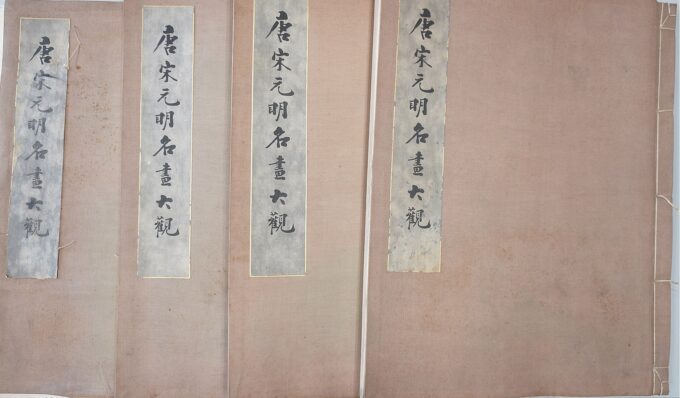 唐宋元明名畫大觀
唐宋元明名畫大觀
唐宋元明名畫大觀
唐宋元明名畫大觀